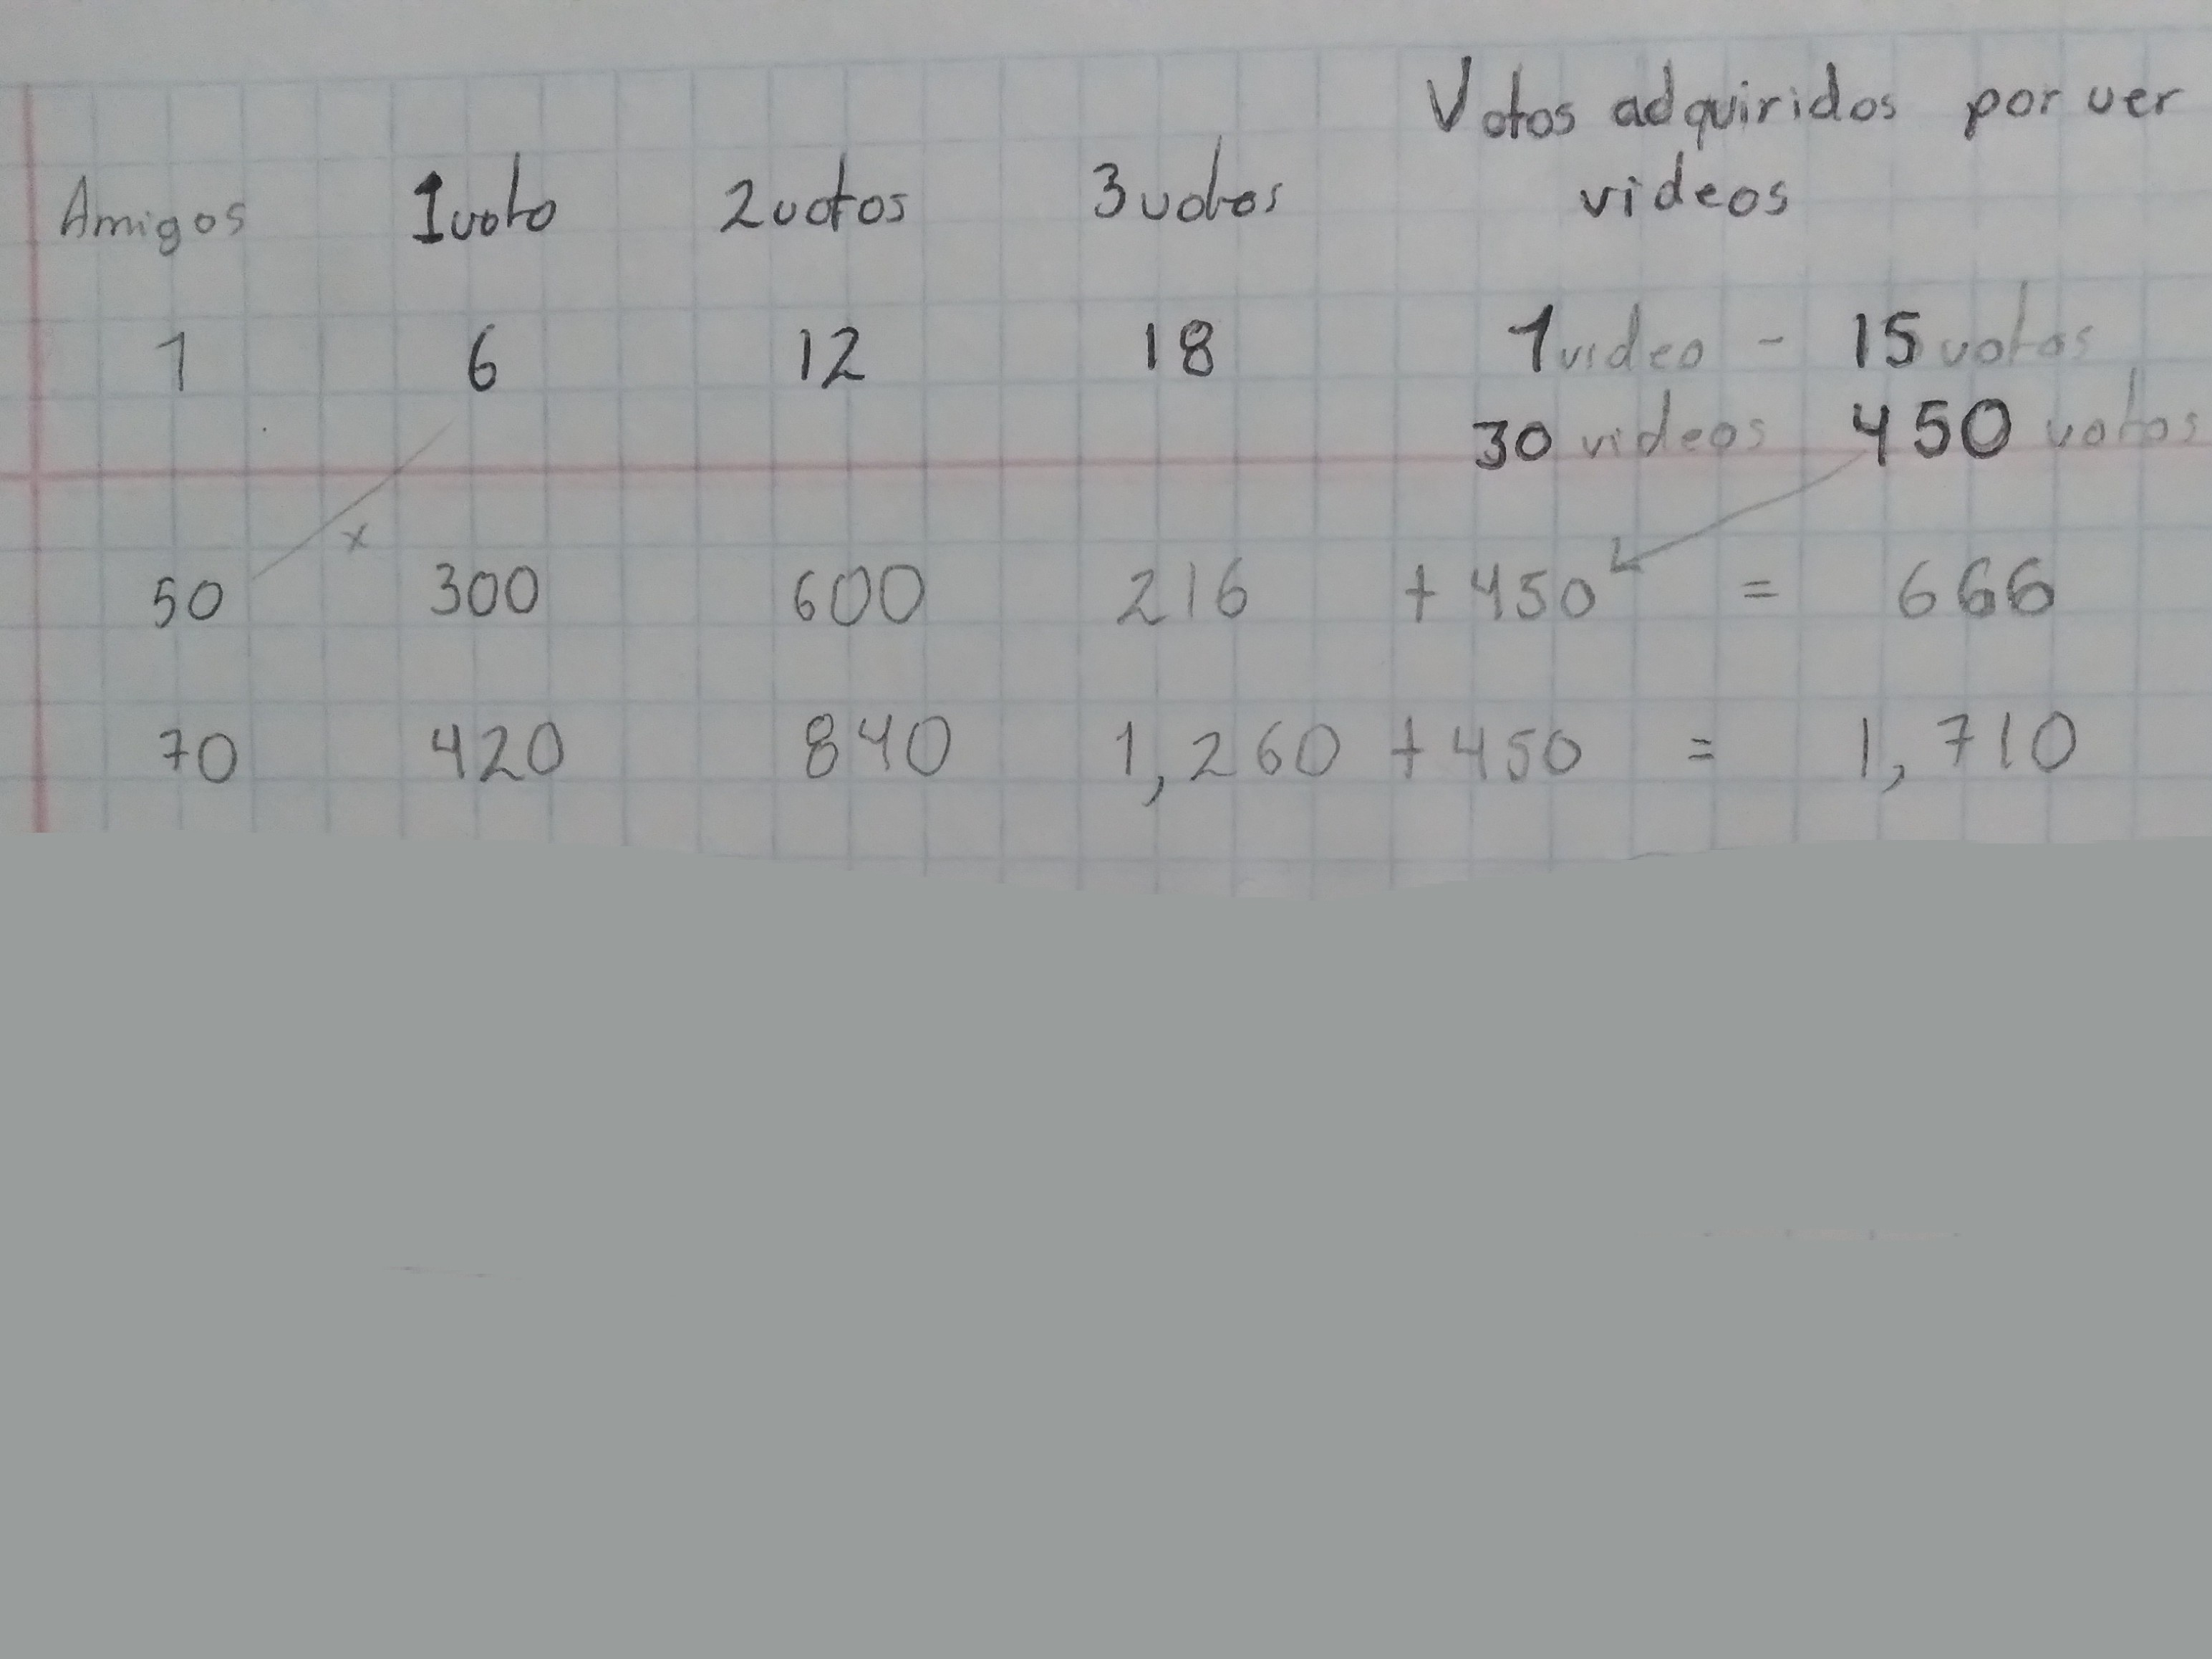 Votos adquiridos por ver
Amigos 1voto 2votos 3votos videos
1 6 12 18 1video - 15 votos
30 videos 450 votos
x
50 300 600 216 + 450 = 666
70 420 840 1,260 + 450 = 1,710